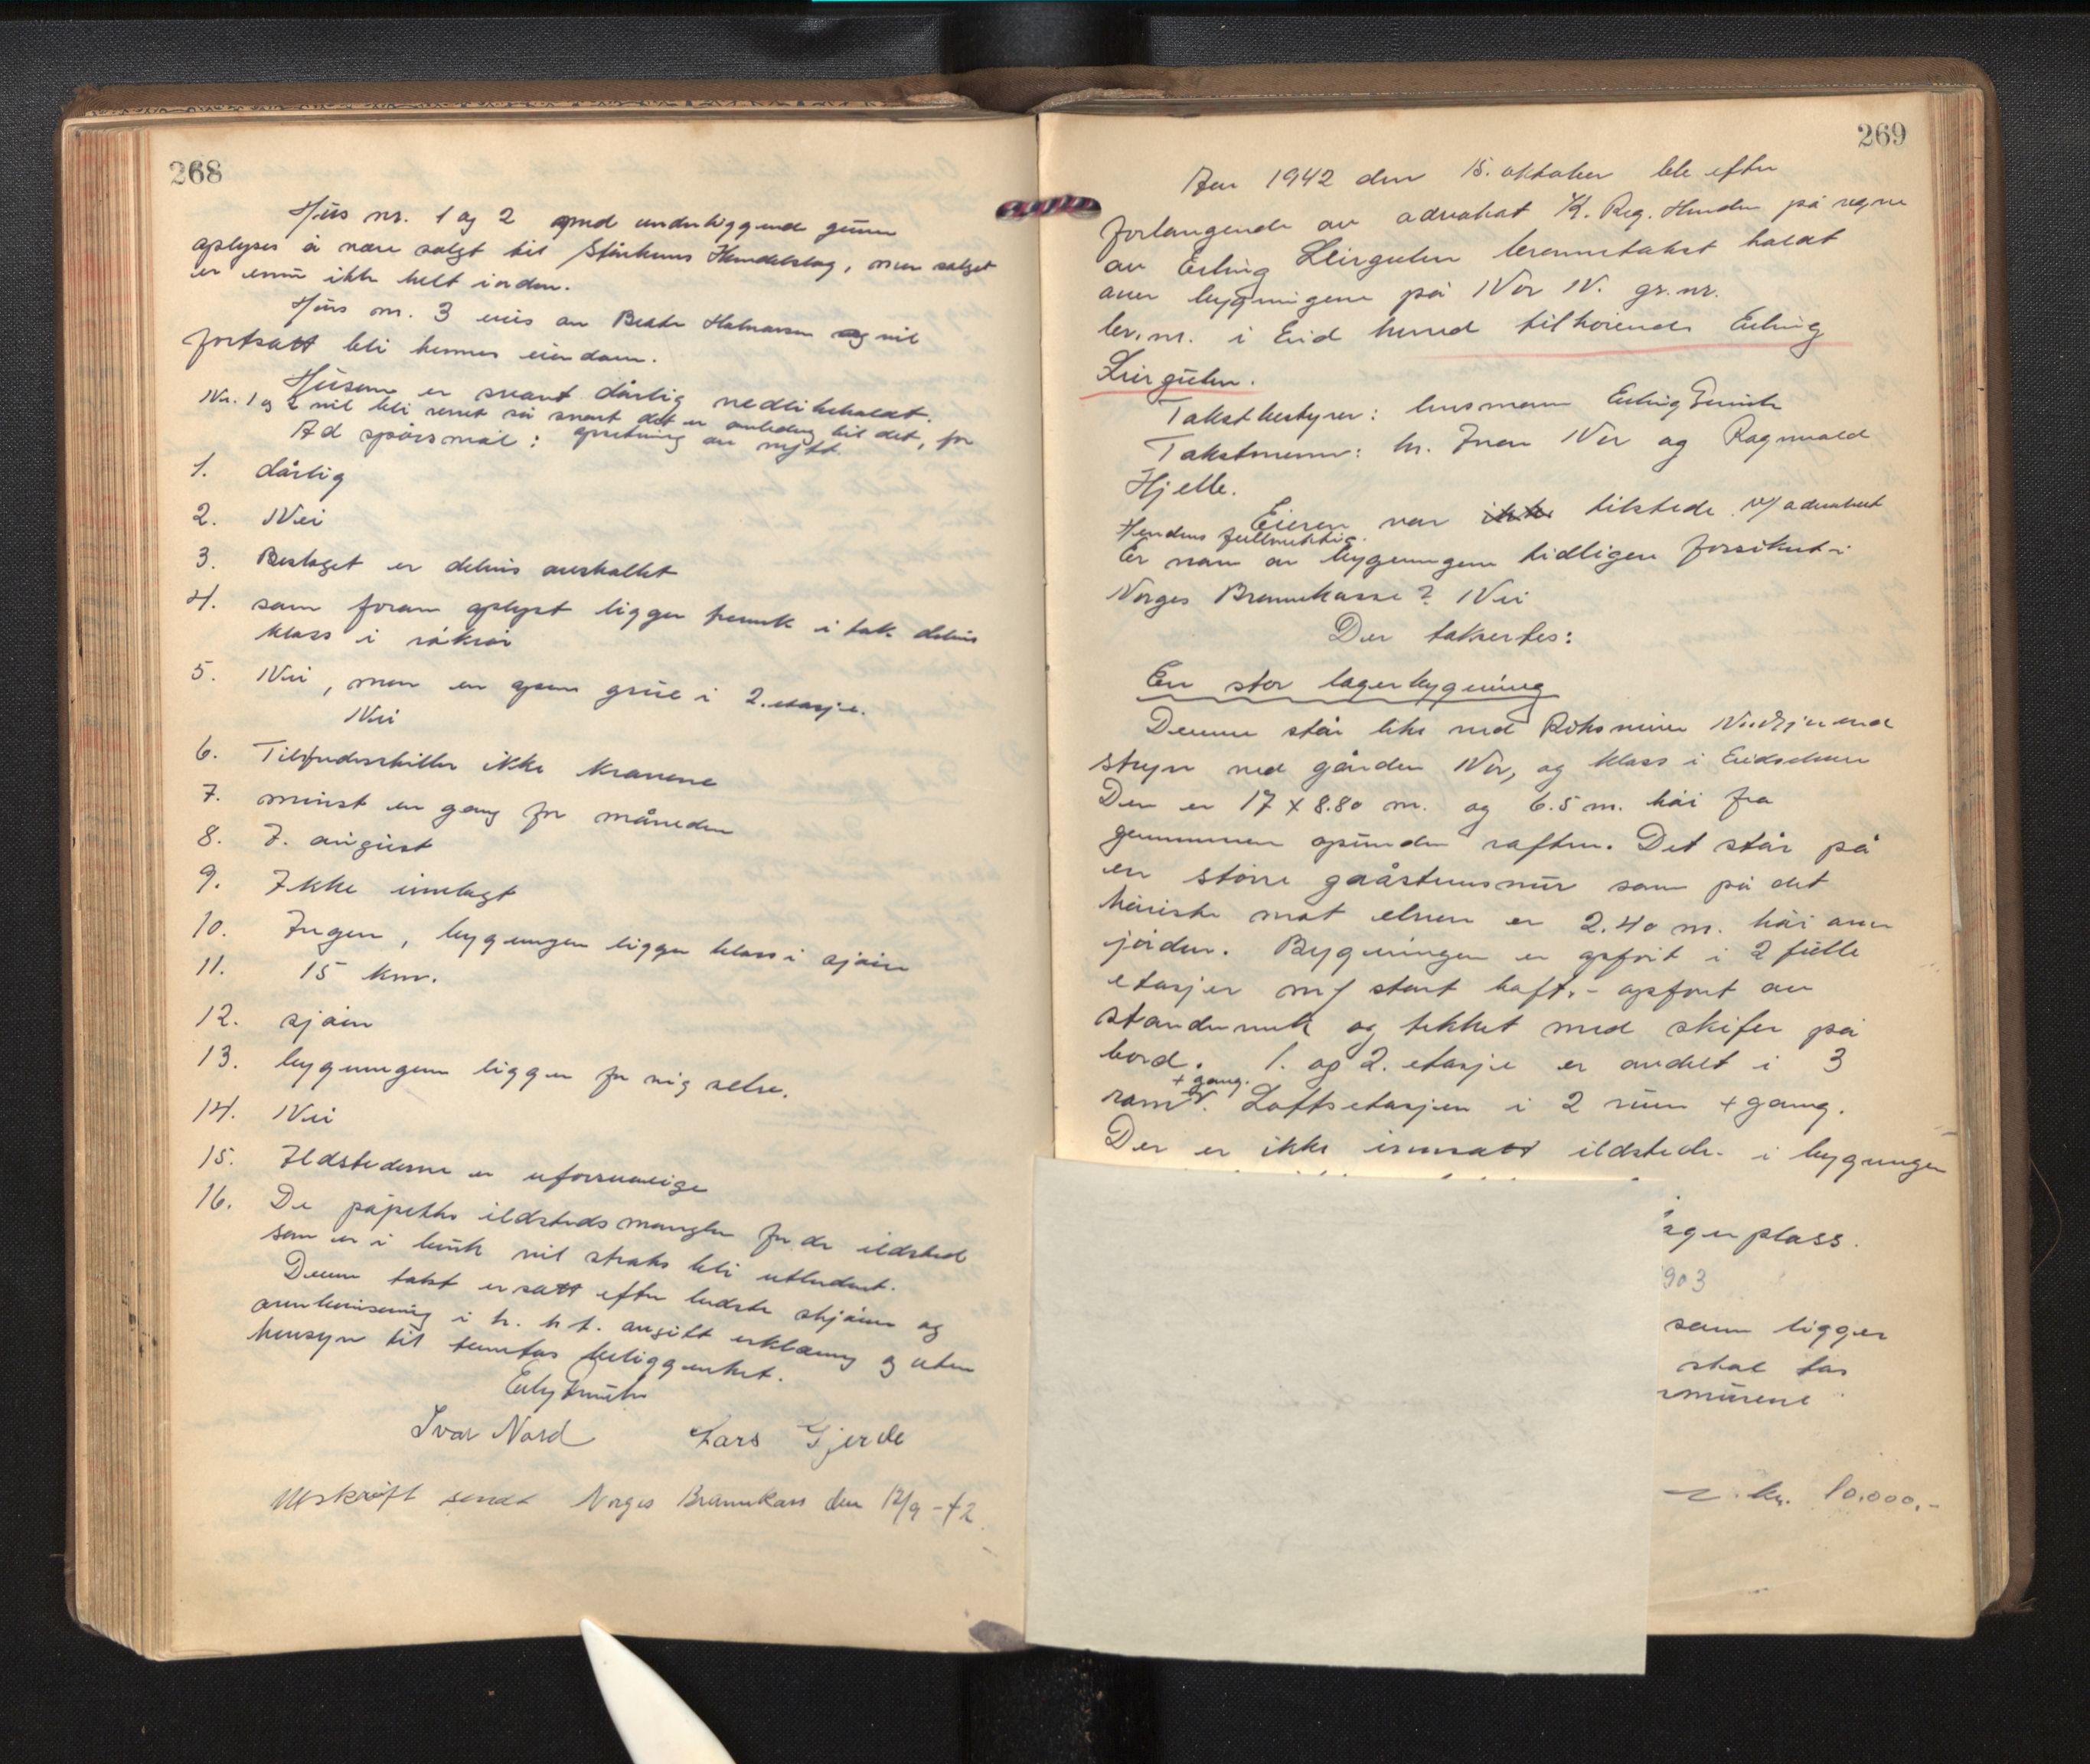 268
Hus nr. 1 og 2 med underliggende grunn
oplyses å være solgt til Stårheims Handelslag, men salget
er ennu ikke helt iorden.
Hus nr. 3 eies av Beate Halvorsen og vil
fortsatt bli hennes eiendom.
Husene er svært dårlig vedlikeholdt.
Nr. 1 og 2 vil bli revet så snart det er anledning til det, for
Ad spørsmål: opsetning av nytt.
1. dårlig
2. Nei
3. Beslaget er delvis avskallet
4. som foran oplyst ligger trevirk i tak delvis
klass i røkrør
5. Nei, men en open grue i 2. etasje.
Nei
6. Tilfredsstiller ikke kravene
7. minst en gang pr måneden
8. 7. august
9. Ikke innlagt
10. Ingen, bygningen ligger klass i sjøen
11. 15 km.
12. sjøen
13. bygningene ligger for sig selv.
14. Nei
15. Ildstederne er uforsvarlige
16. De påpekte ildstedsmangler for de ildsted
som er i bruk vil straks bli utbedret.
Denne takst er satt efter bedste skjønn og
overbevisning i h. h. t. avgitt erklæring og uten
hensyn til tomtens beliggenhet.
Ivar Nord Lars Gjerde
Utskrift sendt Norges Brannkasse den 12/9-42.
269
Aar 1942 den 15. oktober ble efter
forlangende av advokat K. Reg. Henden på vegne
av Erling Leirgulen brannetakst holdt
over bygningene på Nor N. gr.nr.
br.nr. i Eid herred tilhørende Erling
Leirgulen.
Takstbestyrer: lensmann Erling
Takstmenn: hr. Ivar Nor og Ragnvald
Hjelle.
Eieren var ikke tilstede v/advokat
Hendens fullmektig.
Er noen av bygningene tidligere forsikret i
Norges Brannkasse? Nei
Der takseres:
En stor lagerbygning
Denne står like ved Riksveien Nordfjordeid
Stryn ved gården Nor, og klass i Eidselven
Den er 17 x 8.80 m. og 6.5 m. høi fra
grunnmuren opunder raften. Det står på
en større gråstensmur som på det
høieste mot elven er 2.40 m. høi over
jorden. Bygningen er opført i 2 fulle
etasjer m/ stort loft,- opført av
standerverk og tekket med skifer på
bord. 1. og 2. etasje er avdelt i 3
+ gang.
rom. Loftsetasjen i 2 rum + gang.
Der er ikke innsatt ildsteder i bygningen
agerplass.
903
som ligger
skal tas
murene
kr. 10.000,-